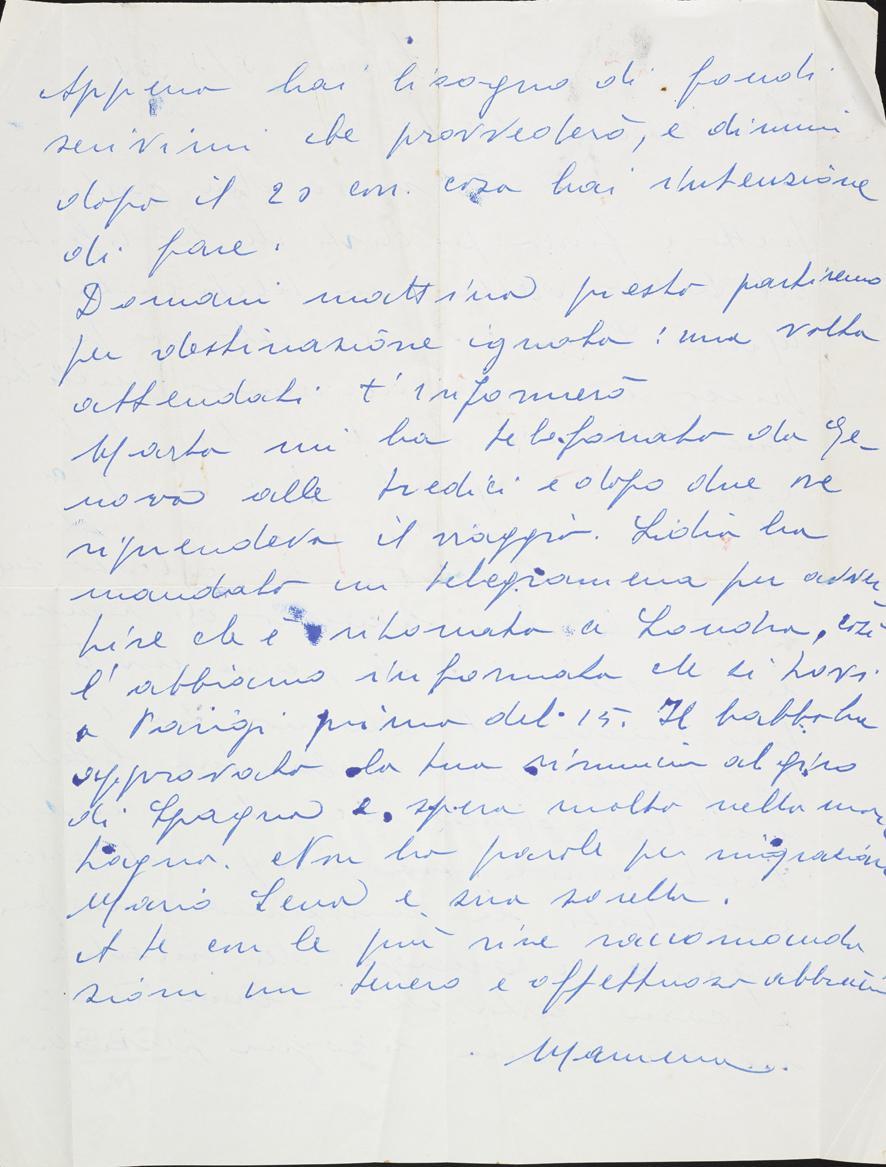 Appena hai bisogno di fondi
scrivimi che provvederò, e dimmi
dopo il 20 cor. cosa hai intenzione
di fare.
Domani mattina presto partiremo
per destinazione ignota: una volta
attendati t'informerò
Marta mi ha telefonato da Ge-
nova alle tredici e dopo due ore
riprendeva il viaggio. Lidia ha
mandato un telegramma per avver-
tire che è ritornata a Londra, così
l'abbiamo informata che si trovi
a Parigi prima del 15. Il babbo ha
approvato la tua rinuncia al giro
di Spagna e spera molto nella mon
tagna. Non ho parole per ringraziare
Mario Lena e sua sorella.
A te con le più vive raccomanda
zioni un tenero e affettuoso abbraccio
Mamma...